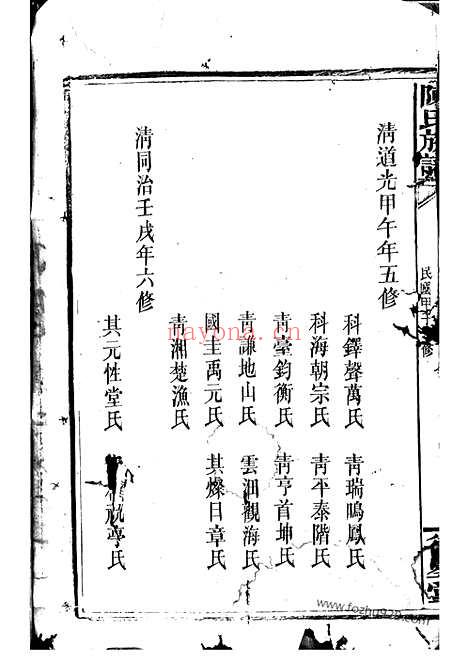 陳氏族譜
民國甲子修
清道光甲午年五修
科鐸聲萬氏 青瑞鳴鳳氏
科海朝宗氏 青平泰階氏
青臺鈞衡氏 青亨首坤氏
青謙地山氏 雲沺觀海氏
國圭禹元氏 其燦日章氏
青湘楚漁氏
清同治壬戌年六修
其元性堂氏 氏
nayona.cn
www.fozhu920.com